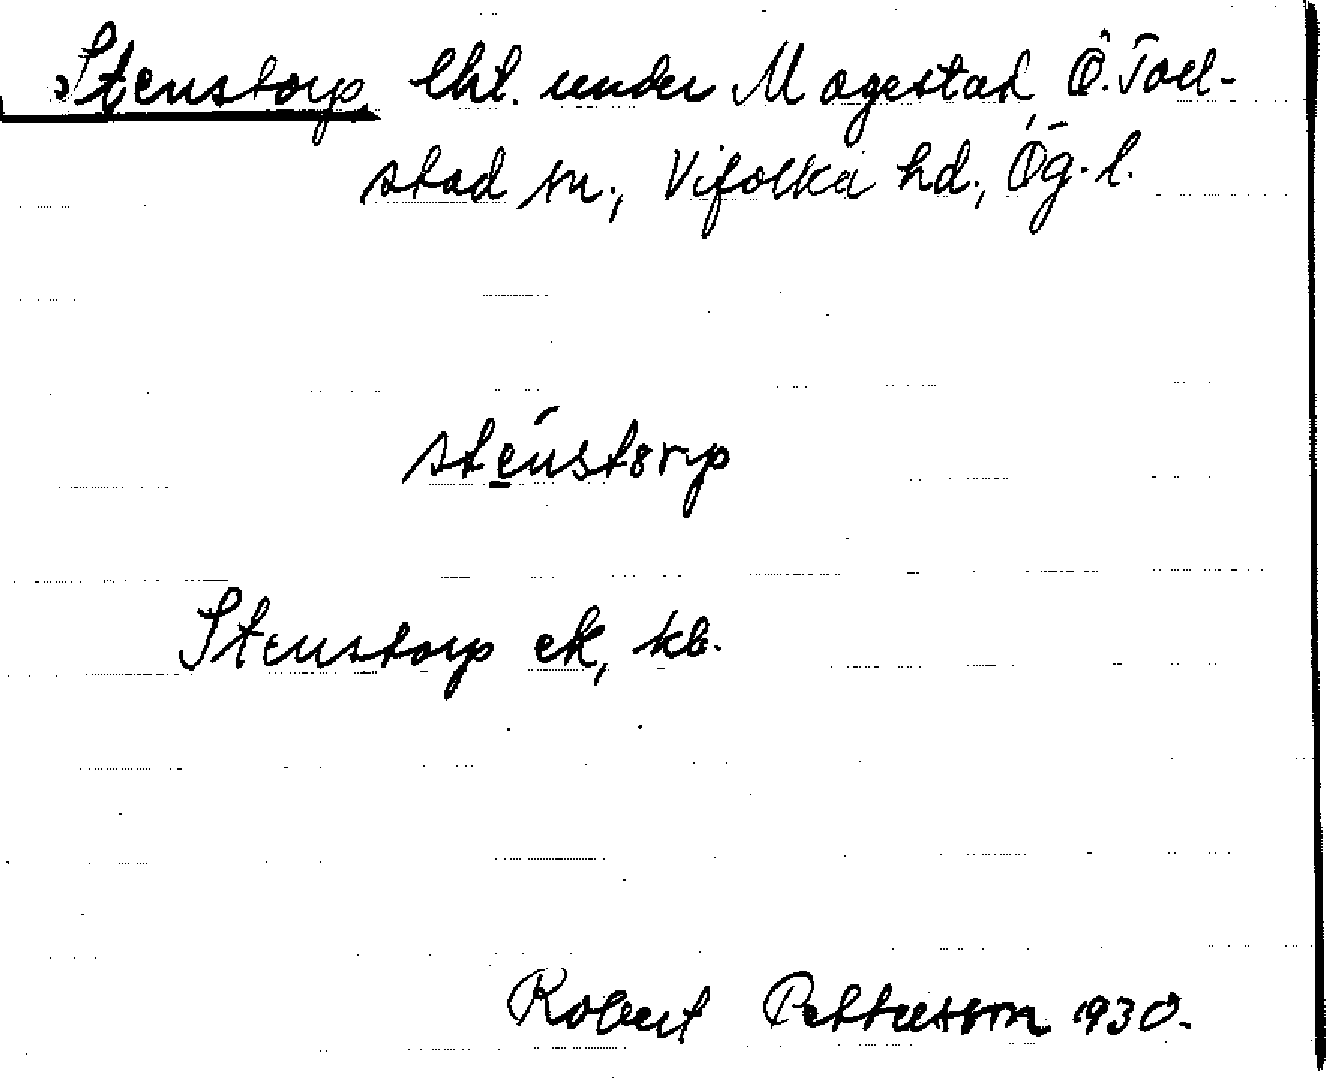 Stenstorp lht. under Mogestad, Ö. Toll-
stad sn., Vifolka hd., Ög. l.
ste̲nstorp
Stenstorp ek, kb.
Robert Pettersson 1930.